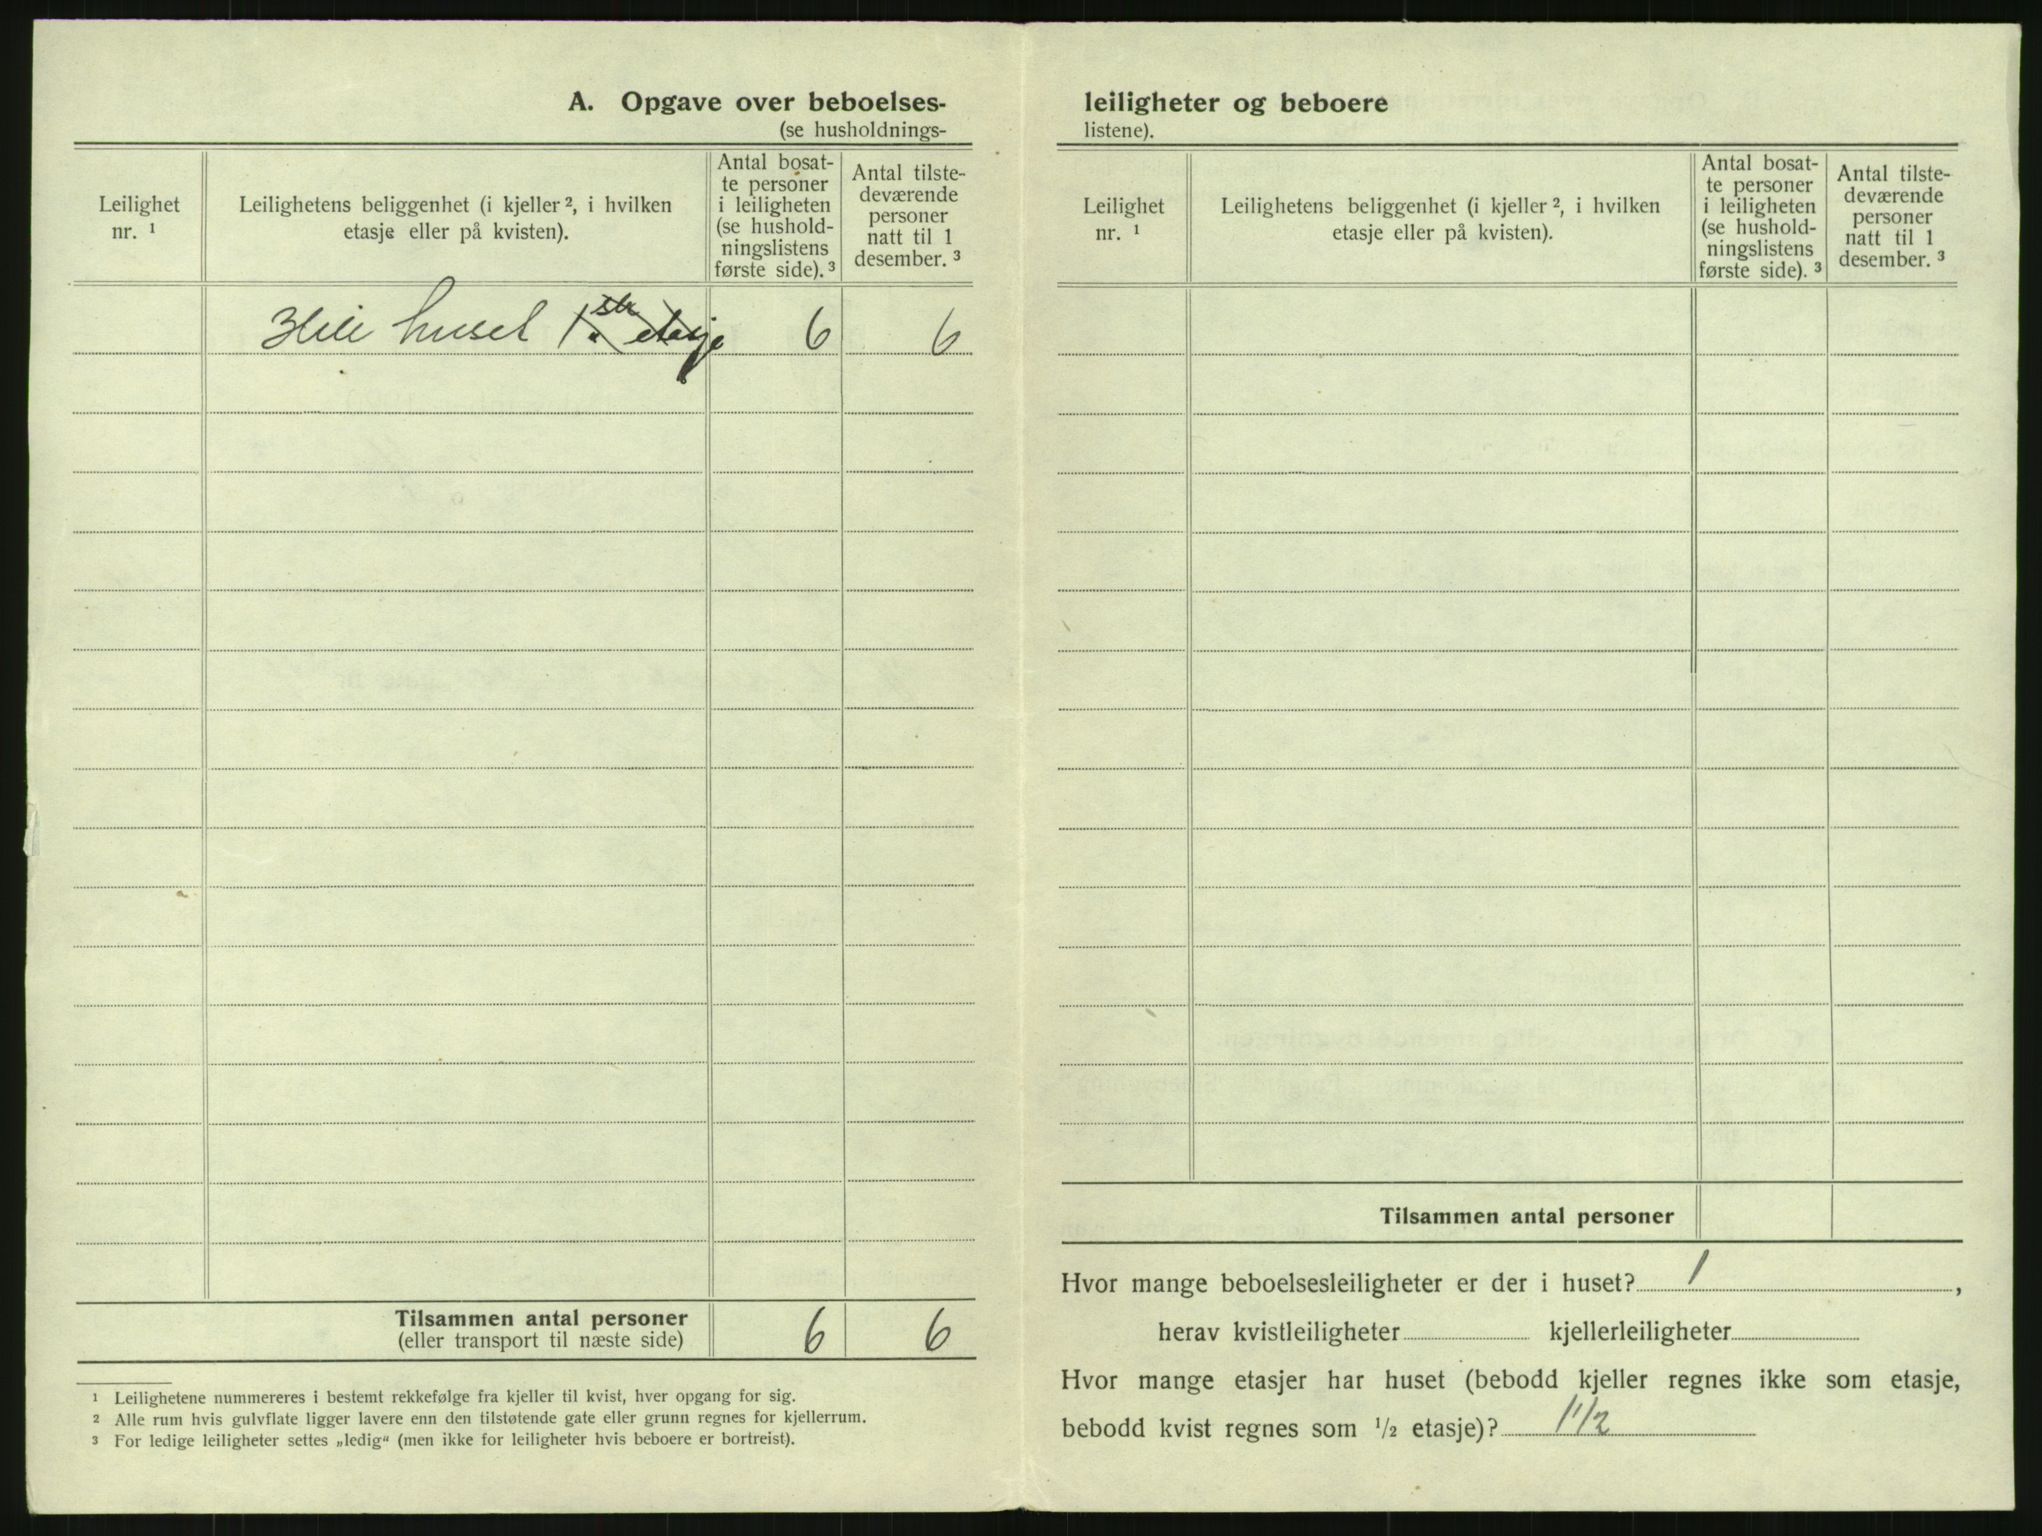 A. Opgave over beboelses-
(se husholdnings-
Leilighet
nr. ¹
Leilighetens beliggenhet (i kjeller ², i hvilken
etasje eller på kvisten).
Antal bosat-
te personer
i leiligheten
(se hushold-
ningslistens
første side). ³
Antal tilste-
deværende
personer
natt til 1
desember. ³
Hele huset 1ste etasje 6 6
Tilsammen antal personer
(eller transport til næste side) 6 6
¹ Leilighetene nummereres i bestemt rekkefølge fra kjeller til kvist, hver opgang for sig.
² Alle rum hvis gulvflate ligger lavere enn den tilstøtende gate eller grunn regnes for kjellerrum.
³ For ledige leiligheter settes „ledig“ (men ikke for leiligheter hvis beboere er bortreist).
leiligheter og beboere
listene).
Leilighet
nr. ¹
Leilighetens beliggenhet (i kjeller ², i hvilken
etasje eller på kvisten).
Antal bosat-
te personer
i leiligheten
(se hushold-
ningslistens
første side). ³
Antal tilste-
deværende
personer
natt til 1
desember. ³
Tilsammen antal personer
Hvor mange beboelsesleiligheter er der i huset? 1,
herav kvistleiligheter kjellerleiligheter
Hvor mange etasjer har huset (bebodd kjeller regnes ikke som etasje,
bebodd kvist regnes som ½ etasje)? 1 1/2